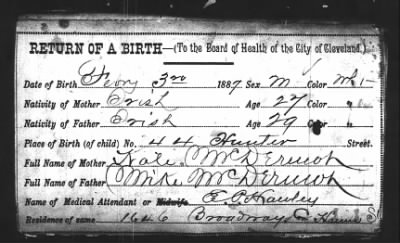 RETURN OF A BIRTH—(To the Board of Health of the City of Cleveland.)
Date of Birth Febry 3rd 1887 Sex M Color Wh
Nativity of Mother Irish Age 27 Color "
Nativity of Father Irish Age 29 Color "
Place of Birth (of child) No. 44 Hunter Street.
Full Name of Mother Kate McDermott
Full Name of Father Mike McDermott
Name of Medical Attendant or Midwife E. P. Hawley
Residence of same 1646 Broadway